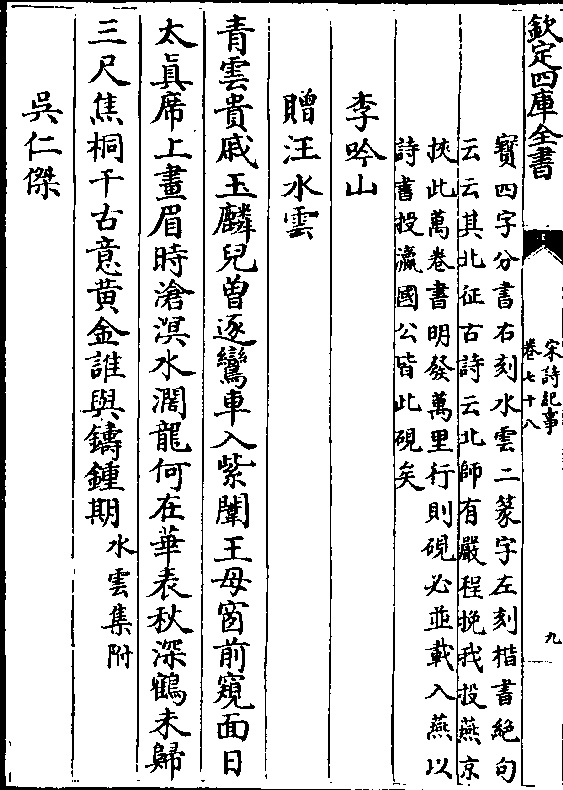 欽定四庫全書
宋詩紀事
卷七十八
九
寳四字分書右刻水雲二篆字左刻楷書絶句
云云其北征古詩云北師有嚴程挽我投燕京
挾此萬卷書明發萬里行則硯必並載入燕以
詩書投瀛國公皆此硯矣
李吟山
贈汪水雲
青雲貴戚玉麟兒曽逐鸞車入紫闈王母窗前窺面日
太真席上畫眉時滄溟水濶龍何在華表秋深鶴未歸
三尺焦桐千古意黄金誰與鑄鍾期水雲集附
吳仁傑